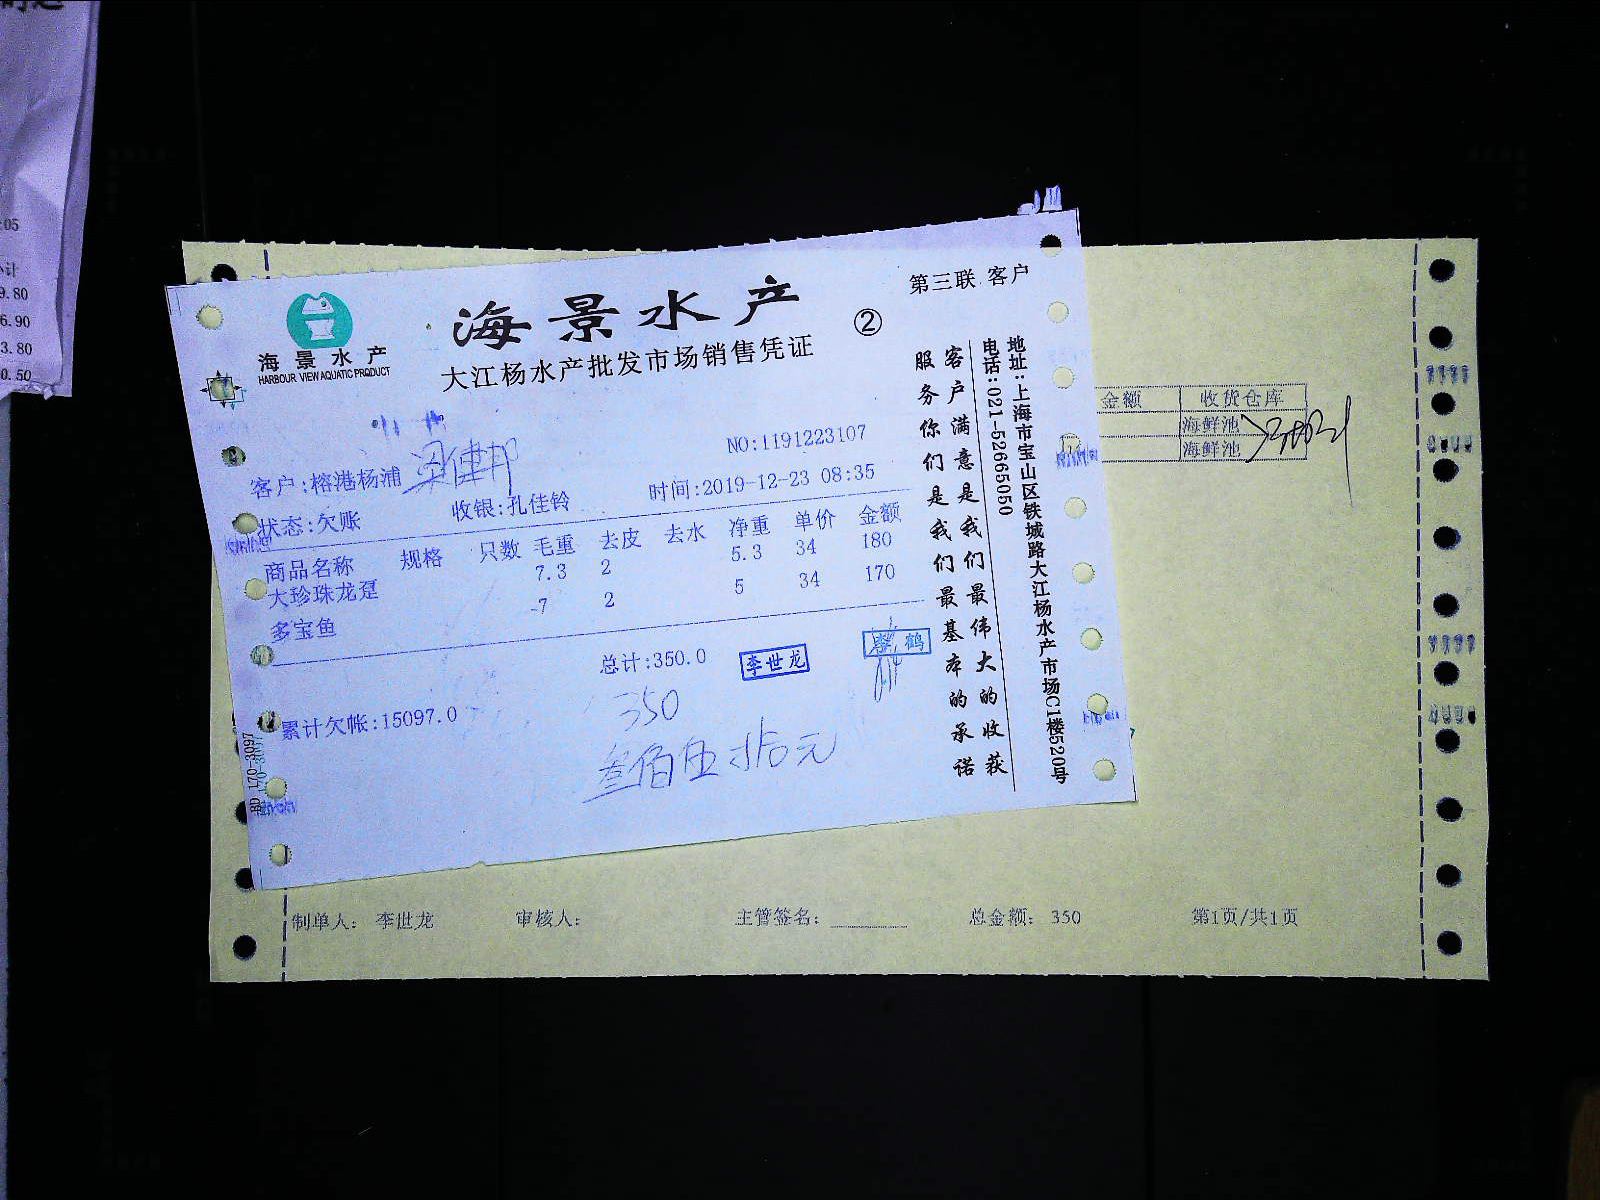 :05
小计
9.80
6.90
3.80
0.50
海景水产
HARBOUR VIEW AQUATIC PRODUCT
海景水产
大江杨水产批发市场销售凭证
②
第三联 客户
NO:1191223107
客户:榕港杨浦
状态:欠账
收银:孔佳铃
时间:2019-12-23 08:35
商品名称 规格 只数 毛重 去皮 去水 净重 单价 金额
大珍珠龙趸 7.3 2 5.3 34 180
多宝鱼 7 2 5 34 170
总计:350.0
李世龙
鹤
累计欠帐:15097.0
350
叁佰伍拾元
客户满意是我们最伟大的收获
服务你们是我们最基本的承诺
地址:上海市宝山区铁城路大江杨水产市场C1楼520号
电话:021-52665050
BD 170-3097
金额 收货仓库
海鲜池
海鲜池
制单人: 李世龙 审核人: 主管签名: 总金额: 350 第1页/共1页